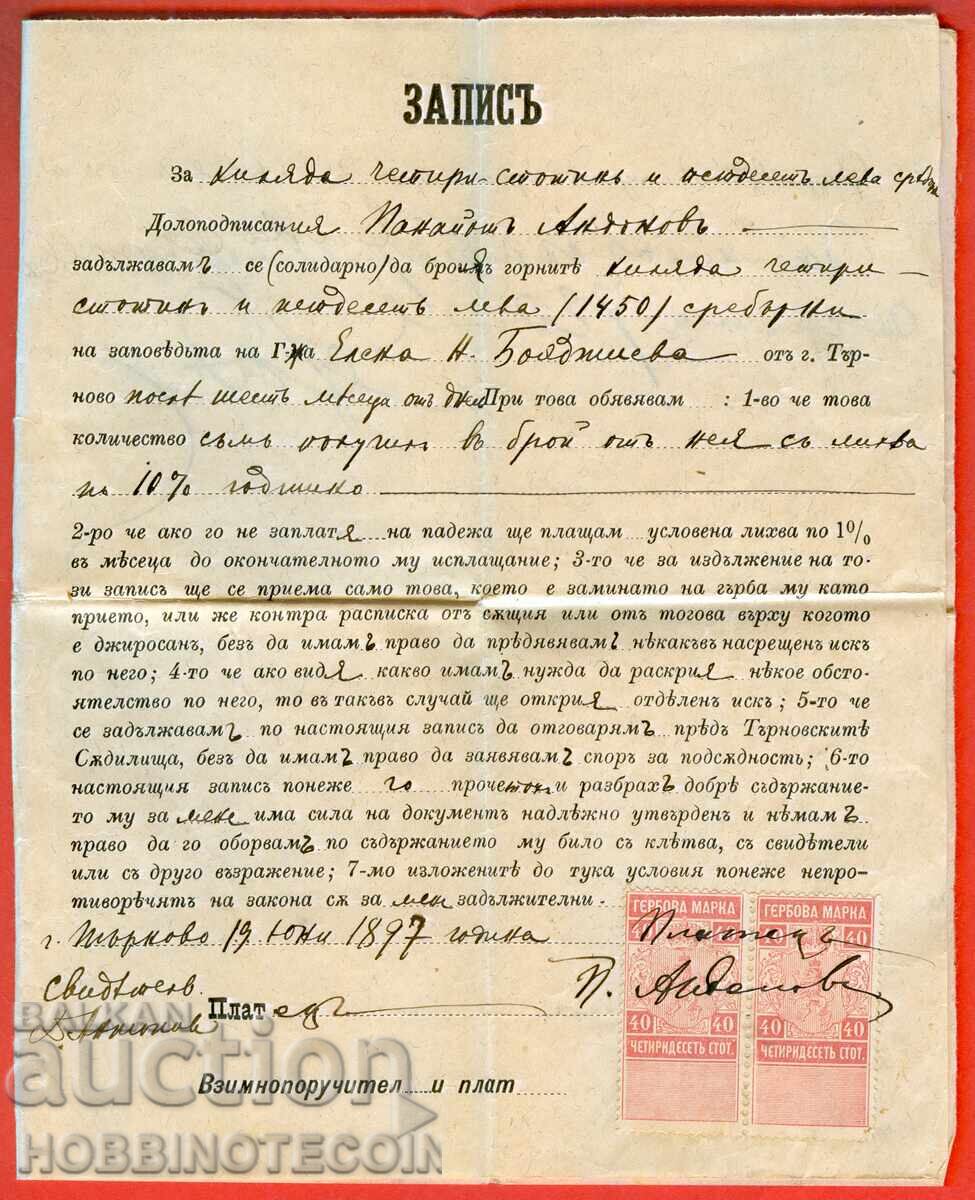 ЗАПИСЪ
За хиляда четири стотинъ и петдесетъ лева сребърни
Долоподписания Панайотъ Андоновъ
задължавамъ се (солидарно) да броиѫ горнитѣ хиляда четири
стотинъ и петдесетъ лева (1450) сребърни
на заповѣдьта на Г-жа Елена Н. Бояджиева отъ г. Тър-
ново послѣ шесть мѣсеца отъ днесь При това обявявам : 1-во че това
количество съмъ получилъ въ брой отъ нея съ лихва
по 10% годишно
2-ро че ако го не заплатя на падежа ще плащам условена лихва по 1%
въ мѣсеца до окончателното му исплащание; 3-то че за издължение на то-
зи запис ще се приема само това, което е заминато на гърба му като
прието, или же контра расписка отъ сѫщия или отъ тогова върху когото
е джиросан, безъ да имамъ право да прѣдявявамъ нѣкакъвъ насрещен искъ
по него; 4-то че ако видя какво имамъ нужда да раскрия нѣкое обсто-
ятелство по него, то въ такъвъ случай ще открия отдѣлен искъ; 5-то че
се задължавамъ по настоящия запис да отговарямъ прѣдъ Търновските
Сѫдилища, безъ да имамъ право да заявявамъ спор за подсѫдность; 6-то
настоящия запис понеже го прочетохъ и разбрахъ добрѣ съдържание-
то му за мене има сила на документ надлѣжно утвърден и нѣмамъ
право да го оборвамъ по съдържанието му било съ клѣтва, съ свидѣтели
или съ друго възражение; 7-мо изложенитѣ до тука условия понеже непро-
тиворѣчят на закона сѫ за мен задължителни.
г. Търново 19 юни 1897 година Платецъ
Свидѣтель П. Андоновъ
Д. Антонов Платецъ
Взимнопоручител и плат
ГЕРБОВА МАРКА ГЕРБОВА МАРКА
40 40 40 40
40 40 40 40
ЧЕТИРИДЕСЕТЬ СТОТ. ЧЕТИРИДЕСЕТЬ СТОТ.
BALKAN
auction
HOBBINOTECOIN